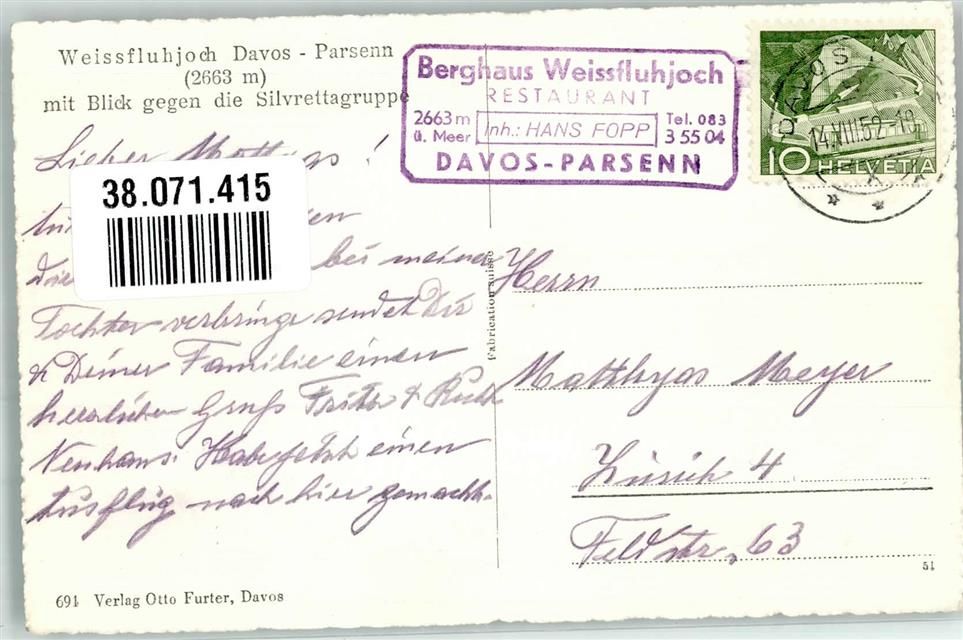 Weissfluhjoch Davos - Parsenn
(2663 m)
mit Blick gegen die Silvrettagruppe
Berghaus Weissfluhjoch
RESTAURANT
2663 m
ü. Meer
Inh.: HANS FOPP
Tel. 083
3 55 04
DAVOS - PARSENN
DAVOS
14.VIII.52-18
10 HELVETIA
Lieber Mathys!
38.071.415
bei meiner
Tochter verbringe sendet Dir
& Deiner Familie einen
herzlichen Gruss Fritz & Ruth
Neuhaus. Habe jetzt einen
Ausflug nach hier gemacht.
Fabrication Suisse
Herrn
Matthyas Meyer
Zürich 4
Feldstr. 63
51
691 Verlag Otto Furter, Davos